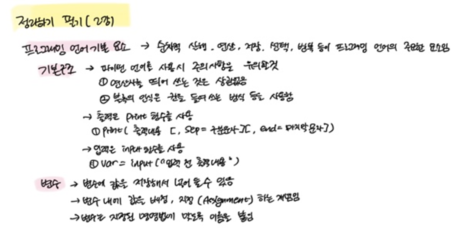 정리하기 필기 (2강)
프로그래밍 언어 기본 요소 → 순차적 실행, 연산, 저장, 선택, 반복 등이 프로그래밍 언어의 주요한 요소임
기본구조 → 파이썬 언어를 사용시 주의사항은 유의할것
① 연산자를 띄어 쓰는 것은 상관없음
② 복수의 인식은 들여쓰는 방식 등도 사용함
→ 출력은 print 함수를 사용
① print( 출력내용 [, sep = 구분문자][, end= 마지막문자])
→ 입력은 input 함수를 사용
① var = input ("입력 전 출력내용")
변수 → 변수에 값을 저장해서 쓸 수 있음
→ 변수 내에 값을 배정, 지정 (Assignment) 하는 개념임
→ 변수로 지정된 명명법에 맞도록 이름을 붙임